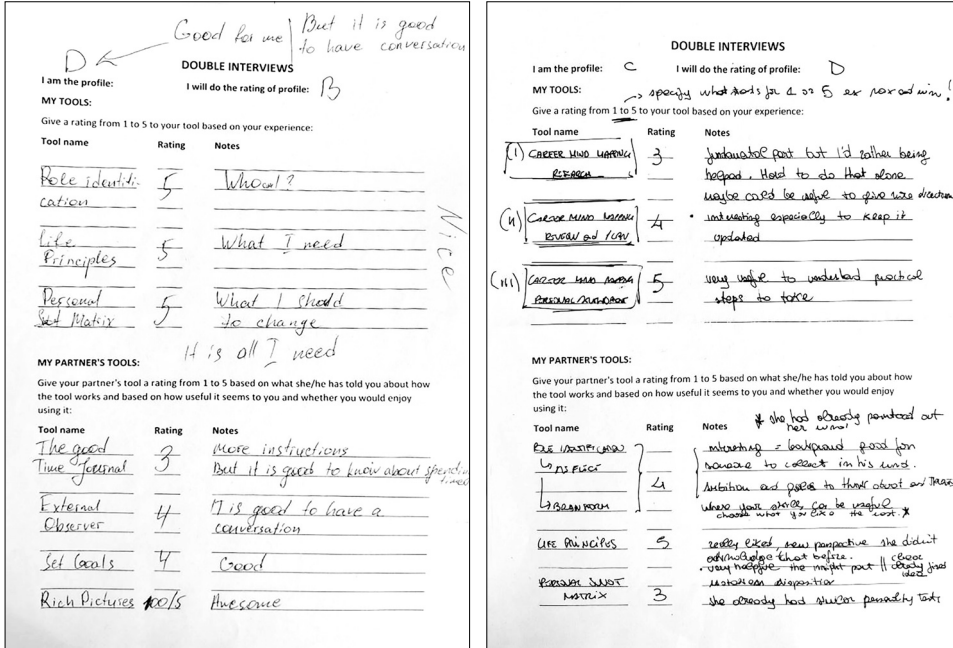 Good for me | But it is good
to have conversation
D
DOUBLE INTERVIEWS
I am the profile: I will do the rating of profile: B
MY TOOLS:
Give a rating from 1 to 5 to your tool based on your experience:
Tool name Rating Notes
Role identifi- 5 Who am I?
cation
Life 5 What I need
Principles
Personal 5 What I should
Matrix to change
Nice
It is all I need
MY PARTNER'S TOOLS:
Give your partner's tool a rating from 1 to 5 based on what she/he has told you about how
the tool works and based on how useful it seems to you and whether you would enjoy
using it:
Tool name Rating Notes
The good 3 More instructions
Time Journal But it is good to know about spending
time!
External 4 It is good to have a
Observer conversation
Set Goals 4 Good
Rich Pictures 100/5 Awesome
DOUBLE INTERVIEWS
I am the profile: C I will do the rating of profile: D
MY TOOLS: → specify what stands for 1 or 5 ex max and min!
Give a rating from 1 to 5 to your tool based on your experience:
Tool name Rating Notes
(I) CAREER MIND MAPPING 3 fundamental part but I'd rather being
RESEARCH helped. Hard to do that alone
maybe could be useful to give more direction
(II) CAREER MIND MAPPING 4 • interesting especially to keep it
REVIEW and PLAN updated
(III) CAREER MIND MAPPING 5 very useful to understand practical
PERSONAL steps to take
MY PARTNER'S TOOLS:
Give your partner's tool a rating from 1 to 5 based on what she/he has told you about how
the tool works and based on how useful it seems to you and whether you would enjoy
using it:
* she had already pointed out
Tool name Rating Notes
ROLE IDENTIFICATION interesting = background good for
↳ REFLECT someone to collect in his mind.
4 Ambition and goals to think about and
↳ BRAINSTORM where your skills can be useful
choose what you like the most. *
LIFE PRINCIPLES 5 really liked, new perspective she didn't
acknowledge that before.
• very helpful the insight part
PERSONAL SWOT
MATRIX 3 she already had similar personality tests